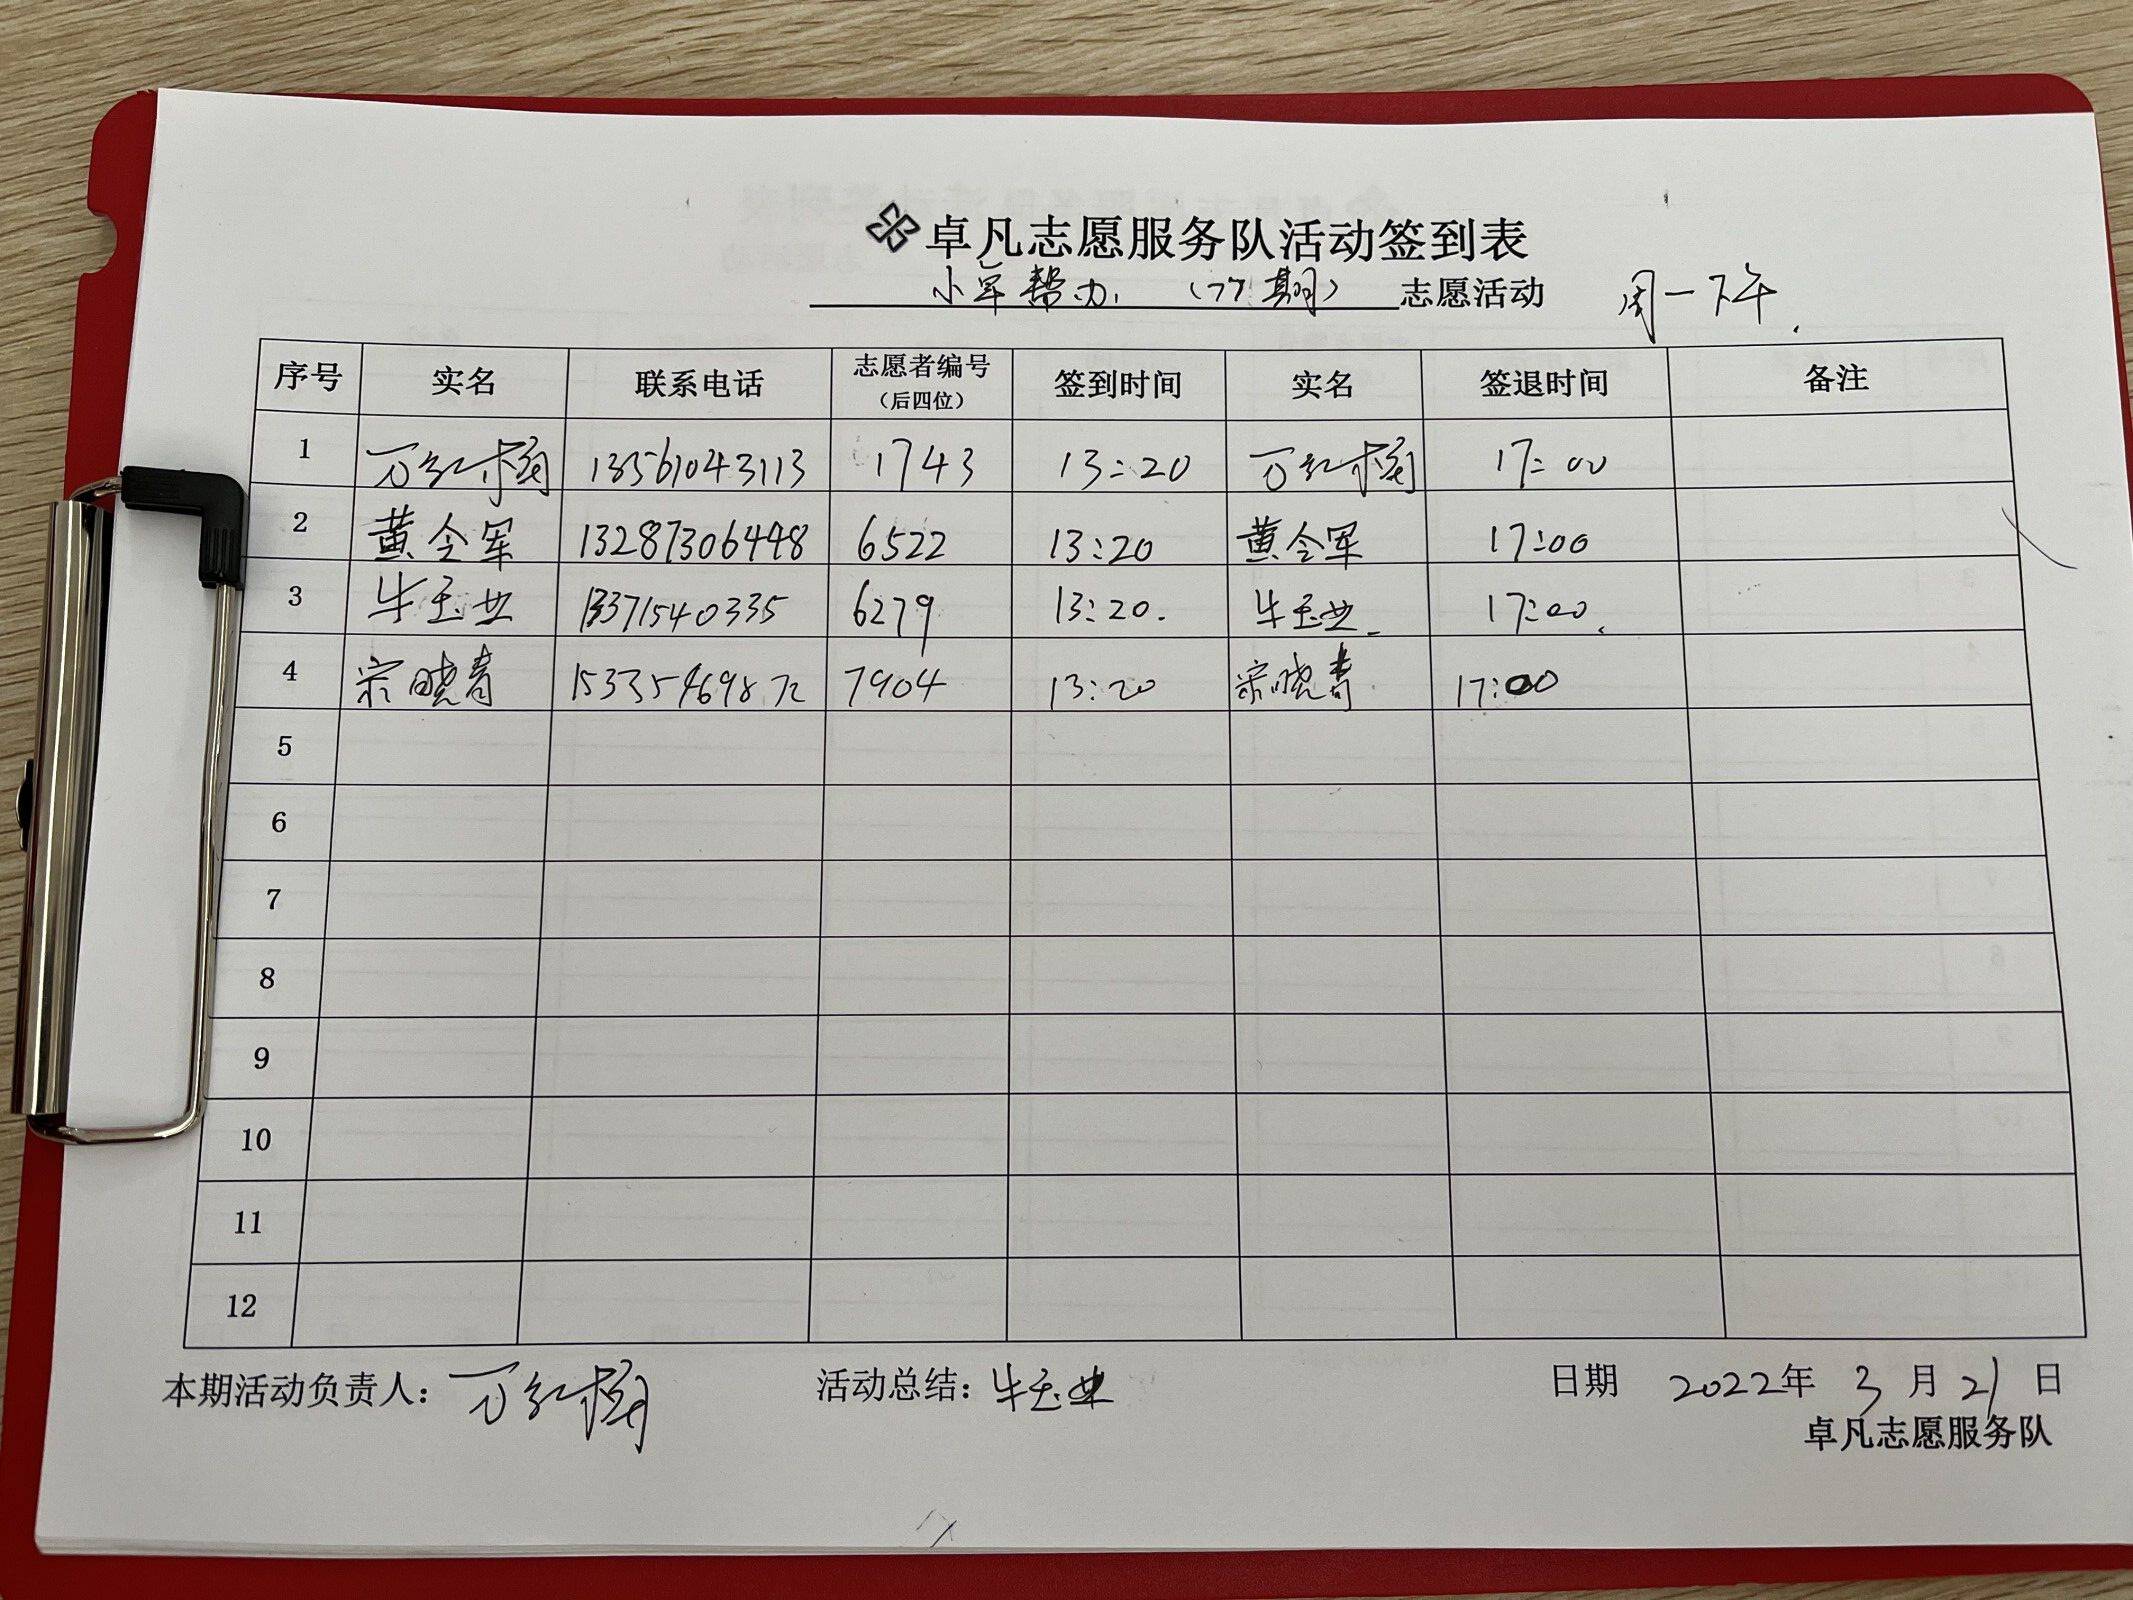 卓凡志愿服务队活动签到表
小军帮办 (77期) 志愿活动 周一下午
序号 实名 联系电话 志愿者编号(后四位) 签到时间 实名 签退时间 备注
1 万红梅 13561043113 1743 13:20 万红梅 17:00
2 黄令军 13287306448 6522 13:20 黄令军 17:00
3 牛玉业 13371540335 6279 13:20. 牛玉业 17:00.
4 宗晓青 7904 13:20 宗晓青 17:00
5
6
7
8
9
10
11
12
本期活动负责人: 万红梅 活动总结: 牛玉业 日期 2022年 3月21日
卓凡志愿服务队